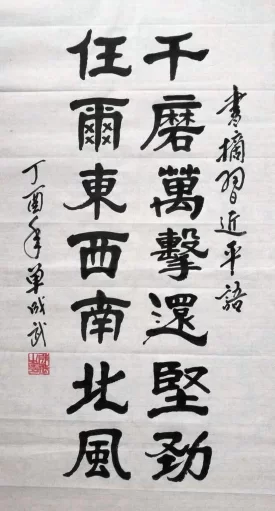 書摘習近平語
千磨萬擊還堅勁
任爾東西南北風
丁酉年單成武